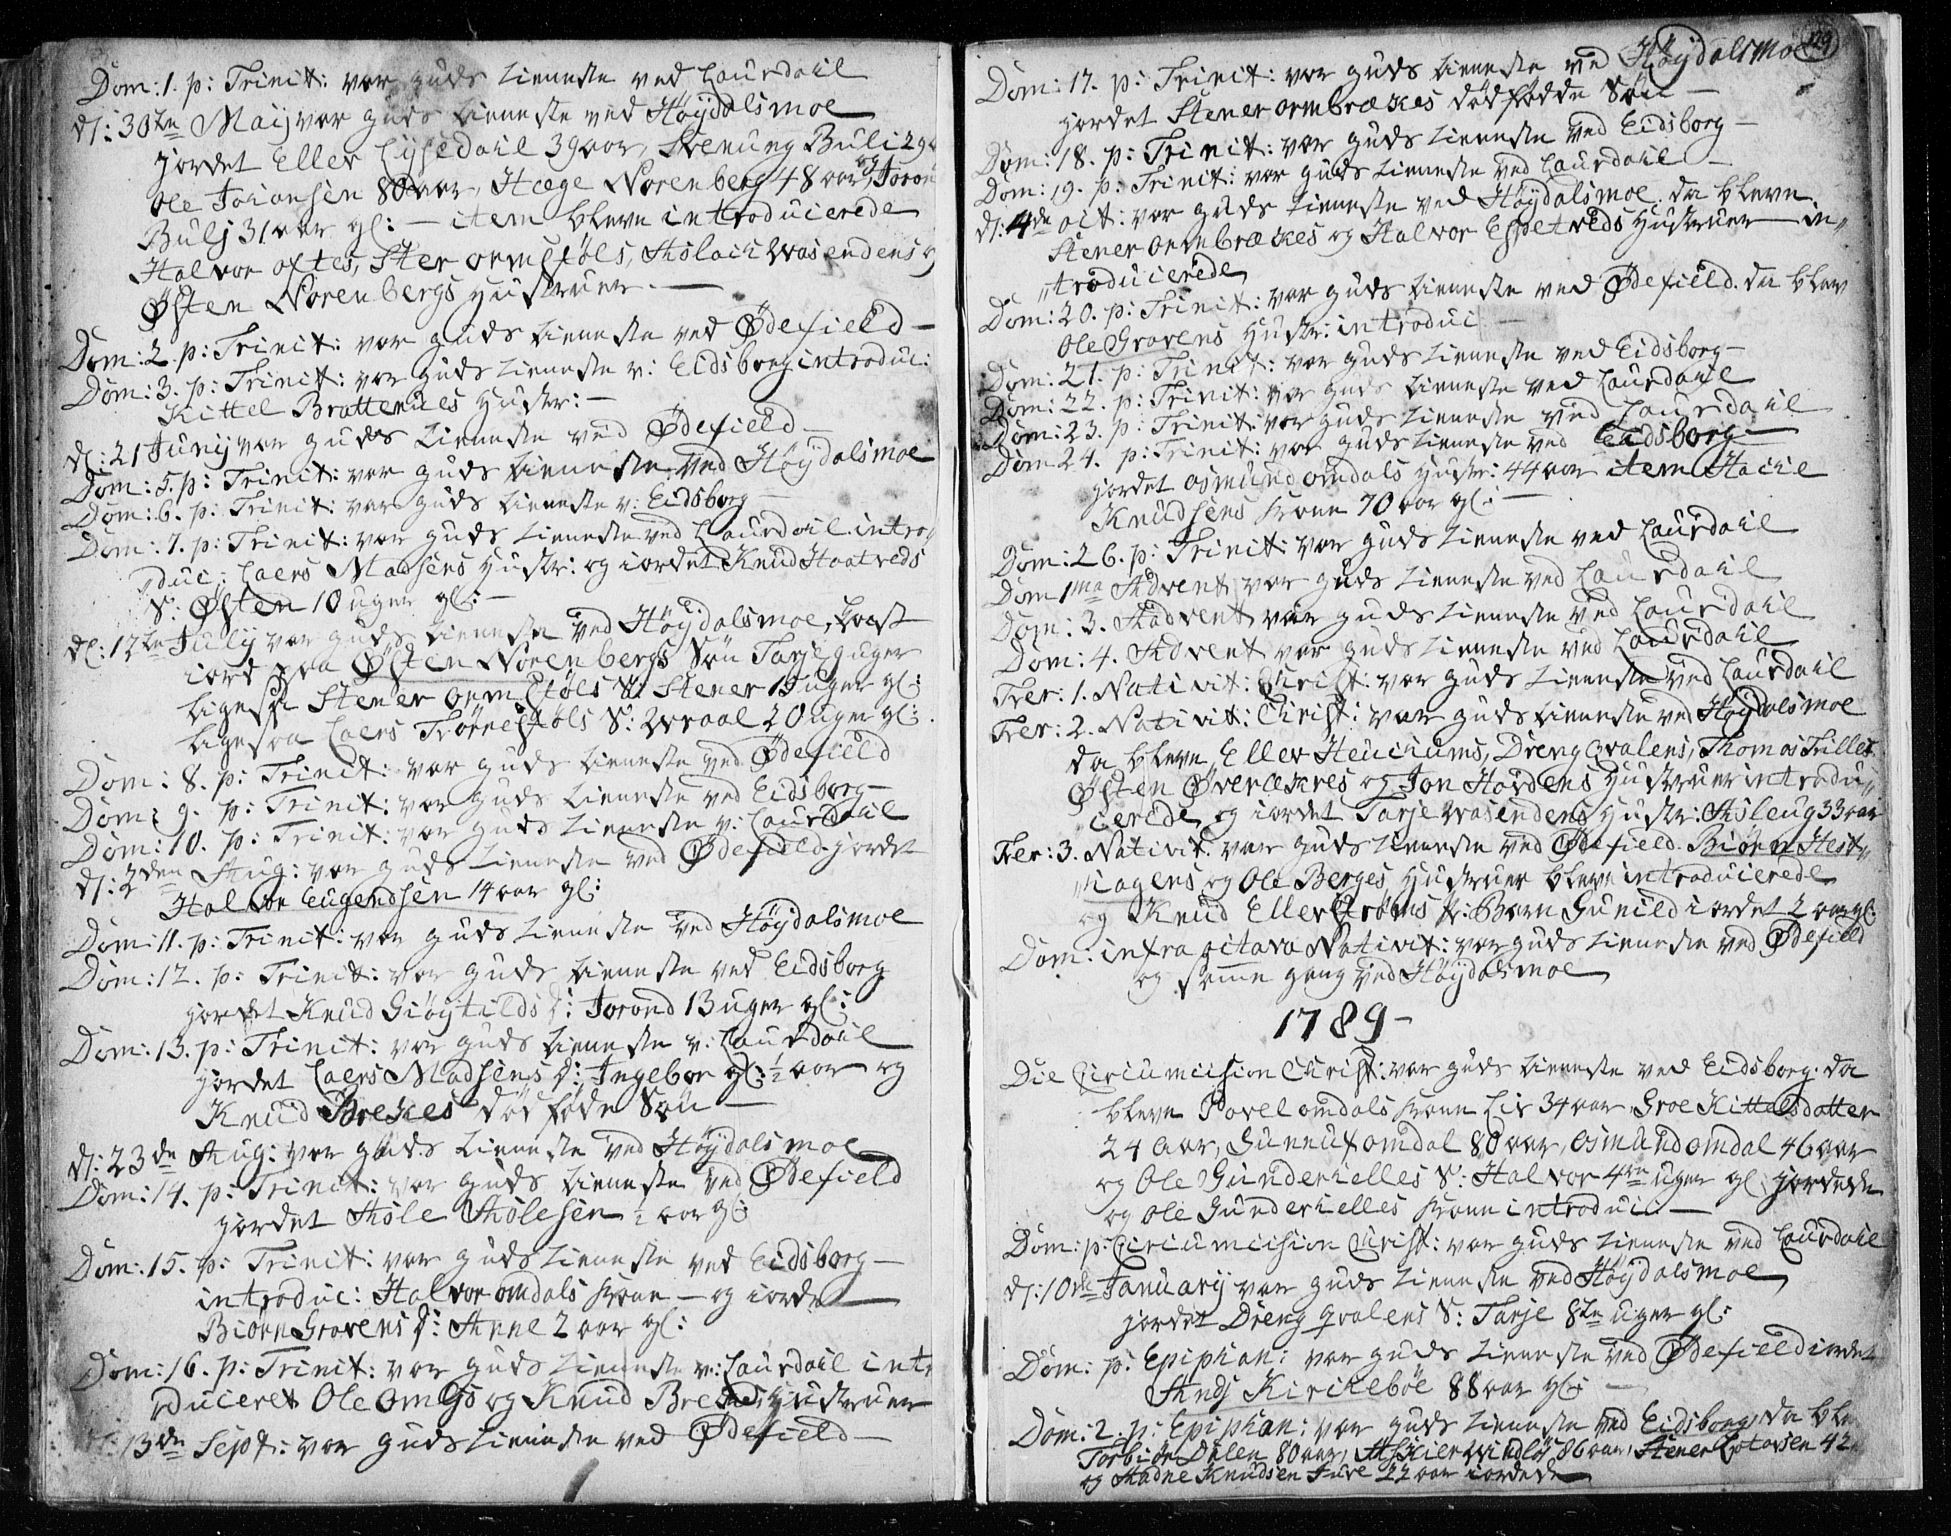 Dom: 1. p: Trinit: var guds tieneste ved Laurdahl
d: 30te Maij var guds tieneste ved Høydalsmoe
jordet Ellev Lysedahl 39 aar, Svenung Buli 29
Ole Johansen 80 aar, Hæge Norenberg 48 aar, og Joron
Bulj 31 aar gl: — item bleve introducerede
Halvor oftes, Sten ormstøls, Aslach Wasendens og
Østen Norenbergs Hustruer. —
Dom: 2. p: Trinit: var guds tieneste ved Ødefield —
Dom: 3. p: Trinit: var guds tieneste v: Eidsborg introduc:
Kittel Brattenies Hustr: —
d: 21 Junij var guds tieneste ved Ødefield —
Dom: 5. p: Trinit: var guds tieneste ved Høydalsmoe
Dom: 6. p: Trinit: var guds tieneste v: Eidsborg —
Dom: 7. p: Trinit: var guds tieneste ved Laurdahl. intro„
„duc: Laers Madsens Hustr: og iordet Knud Haatveds
S: Østen 10 uger gl: —
d: 12te Julij var guds tieneste ved Høydalsmoe, kast
iord paa Østen Norenbergs Søn Tarje 9 uger
ligesaa Stener ormstøls S: Stener 15 uger gl:
ligesaa Laers Trønnestøls S: Wraal 20 uger gl:
Dom: 8. p: Trinit: var guds tieneste ved Ødefield
Dom: 9. p: Trinit: var guds tieneste ved Eidsborg —
Dom: 10. p: Trinit: var guds tieneste v: Laurdahl
d: 2den Aug: var guds tieneste ved Ødefield jordet
Halvor Eugendsen 14 aar gl:
Dom: 11. p: Trinit: var guds tieneste ved Høydalsmoe
Dom: 12. p: Trinit: var guds tieneste ved Eidsborg
jordet Knud Giøytilds D: Jorond 13 uger gl:
Dom: 13. p: Trinit: var guds tieneste v: Laurdahl
jordet Laers Madsens D: Ingebor gl: ½ aar og
Knud Brekes dødføde Søn —
d: 23de Aug: var guds tieneste ved Høydalsmoe
Dom: 14. p: Trinit: var guds tieneste ved Ødefield
jordet Asle Aslesen ½ aar gl:
Dom: 15. p: Trinit: var guds tieneste ved Eidsborg —
introduc: Halvor omdals kone — og iordet
Biørn Gravens D: Anne 2 aar gl:
Dom: 16. p: Trinit: var guds tieneste v: Laurdahl intr
oduceret Ole omlis og Knud Brekes Hustruer
d: 13de Sept: var guds tieneste ved Ødefield —
129
Dom: 17. p: Trinit: var guds tieneste ved Høydalsmoe
jordet Stener ormbrækes dødfødde Søn —
Dom: 18. p: Trinit: var guds tieneste ved Eidsborg —
Dom: 19. p: Trinit: var guds tieneste ved Laurdahl —
d: 4de oct: var guds tieneste ved Høydalsmoe. da bleve
Stener ormbrækes og Halvor Espetveds Hustruer in„
„troducerede
Dom: 20. p: Trinit: var guds tieneste ved Ødefield. da blev
Ole Gravens Hustr: introduc
Dom: 21. p: Trinit: var guds tieneste ved Eidsborg —
Dom: 22. p: Trinit: var guds tieneste ved Laurdahl
Dom: 23. p: Trinit: var guds tieneste ved Laurdahl
Dom: 24. p: Trinit: var guds tieneste ved Eidsborg —
jordet osmund omdals Hustr: 44 aar item Hache
Knudsens kone 70 aar gl: —
Dom: 26. p: Trinit: var guds tieneste ved Laurdahl
Dom 1ma Advent var guds tieneste ved Laurdahl
Dom: 3. Advent var guds tieneste ved Laurdahl
Dom: 4. Advent var guds tieneste ved Laurdahl
Fer: 1. Nativit: Christ: var guds tieneste ved Laurdahl
Fer: 2. Nativit: Christ: var guds tieneste ved Høydalsmoe
da bleve Ellev Heichums, Dreng Qvalens, Thomas Trilles
Østen Øverækres og Jon Høydens Hustruer introdu„
cerede og iordet Tarje Wasendens Hustr: Asleug 33 aar
Fer: 3. Nativit. var guds tieneste ved Ødefield. Biørn Hest„
„hagens og Ole Berges Hustruer bleve introducerede
og Knud Ellefstrøms Barn Gunild iordet 2 aar gl:
Dom: infra octava Nativit: var guds tieneste ved Ødefield
og samme gang ved Høydalsmoe
1789 —
Die Circumcision Christ: var guds tieneste ved Eidsborg. da
bleve Povel omdals kone Liv 34 aar, Groe Kittelsdatter
24 aar, Gunnuf omdal 80 aar, osmund omdal 46 aar
og Ole Gunderielles S: Halvor 4re uger gl jordede
og ole Gunderielles kone introduc. —
Dom: p: Circumcision Christ: var guds tieneste ved Laurdahl
d: 10de Januarij var guds tieneste ved Høydalsmoe
jordet Dreng qvalens S: Tarje 8te uger gl:
Dom: p: Epiphan: var guds tieneste ved Ødefield iordet
Ands Kirckebøe 88 aar gl:
Dom: 2. p: Epiphan: var guds tieneste ved Eidsborg, da ble
Torbiør Dalen 80 aar, 86 aar, Stener 42
og Aadne Knudsen Juve 22 aar iordede